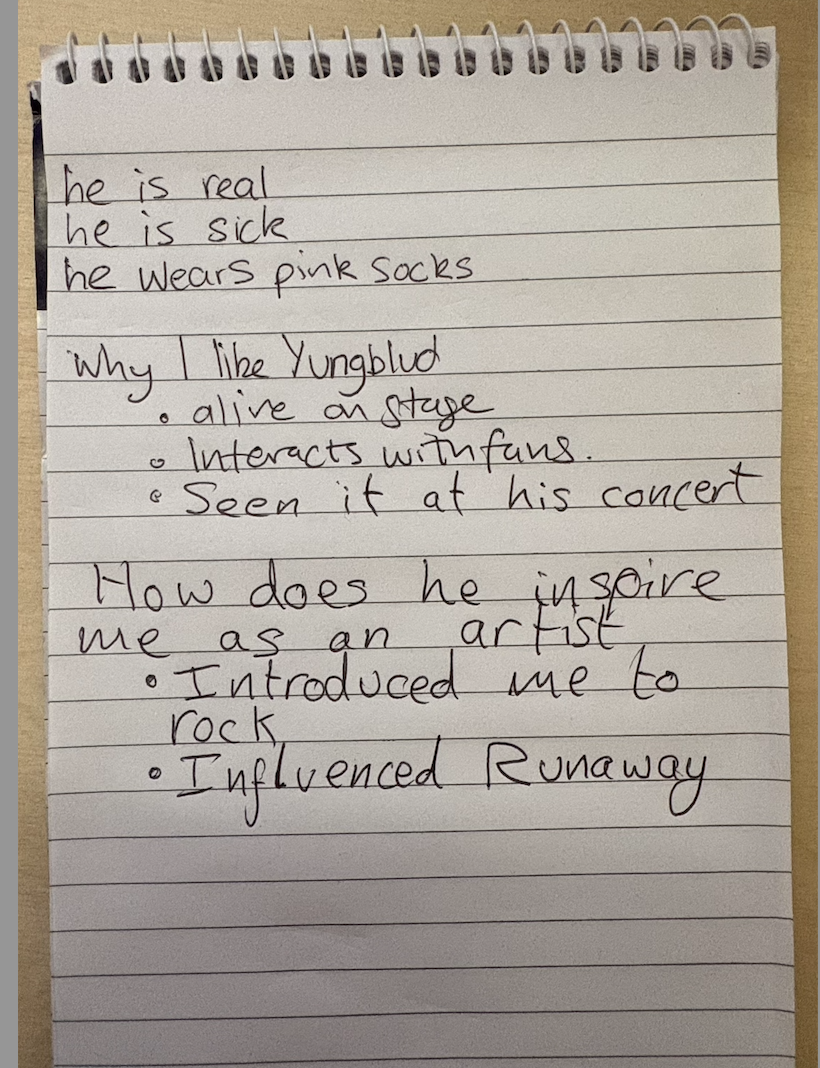 he is real
he is sick
he wears pink socks
Why I like Yungblud
• alive on stage
• Interacts with fans.
• Seen it at his concert
How does he inspire
me as an artist
• Introduced me to
rock
• Influenced Runaway